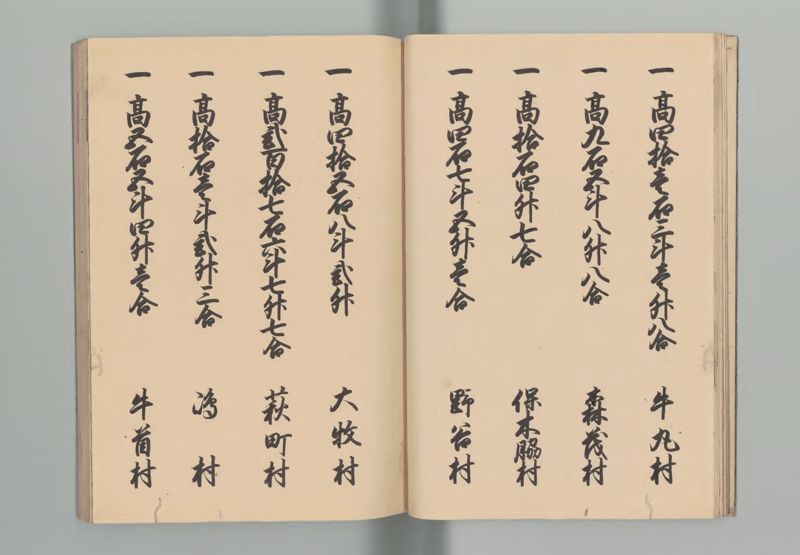 一 高四拾壱石三斗壱升八合 牛丸村
一 高九石五斗八升八合 森茂村
一 高拾石四升七合 保木脇村
一 高四石七斗五升壱合 野谷村
一 高四拾五石八斗弐升 大牧村
一 高弐百拾七石六斗七升七合 萩町村
一 高拾石壱斗弐升三合 嶋村
一 高五石五斗四升壱合 牛首村